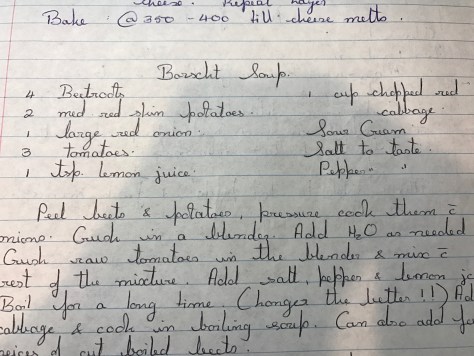 cheese. Repeat layer
Bake @ 350 - 400 till cheese melts.
Borscht Soup.
4 Beetroots 1 cup chopped red
2 med red skin potatoes. cabbage.
1 large red onion. Sour Cream.
3 tomatoes. Salt to taste.
1 tsp. lemon juice. Pepper " "
Peel beets & potatoes, pressure cook them c̄
onions. Crush in a blender. Add H₂O as needed
Crush raw tomatoes in the blender & mix c̄
rest of the mixture. Add salt, pepper & lemon
Boil for a long time. (Longer the better !!)
cabbage & cook in boiling soup. Can also add
pieces of cut boiled beets.